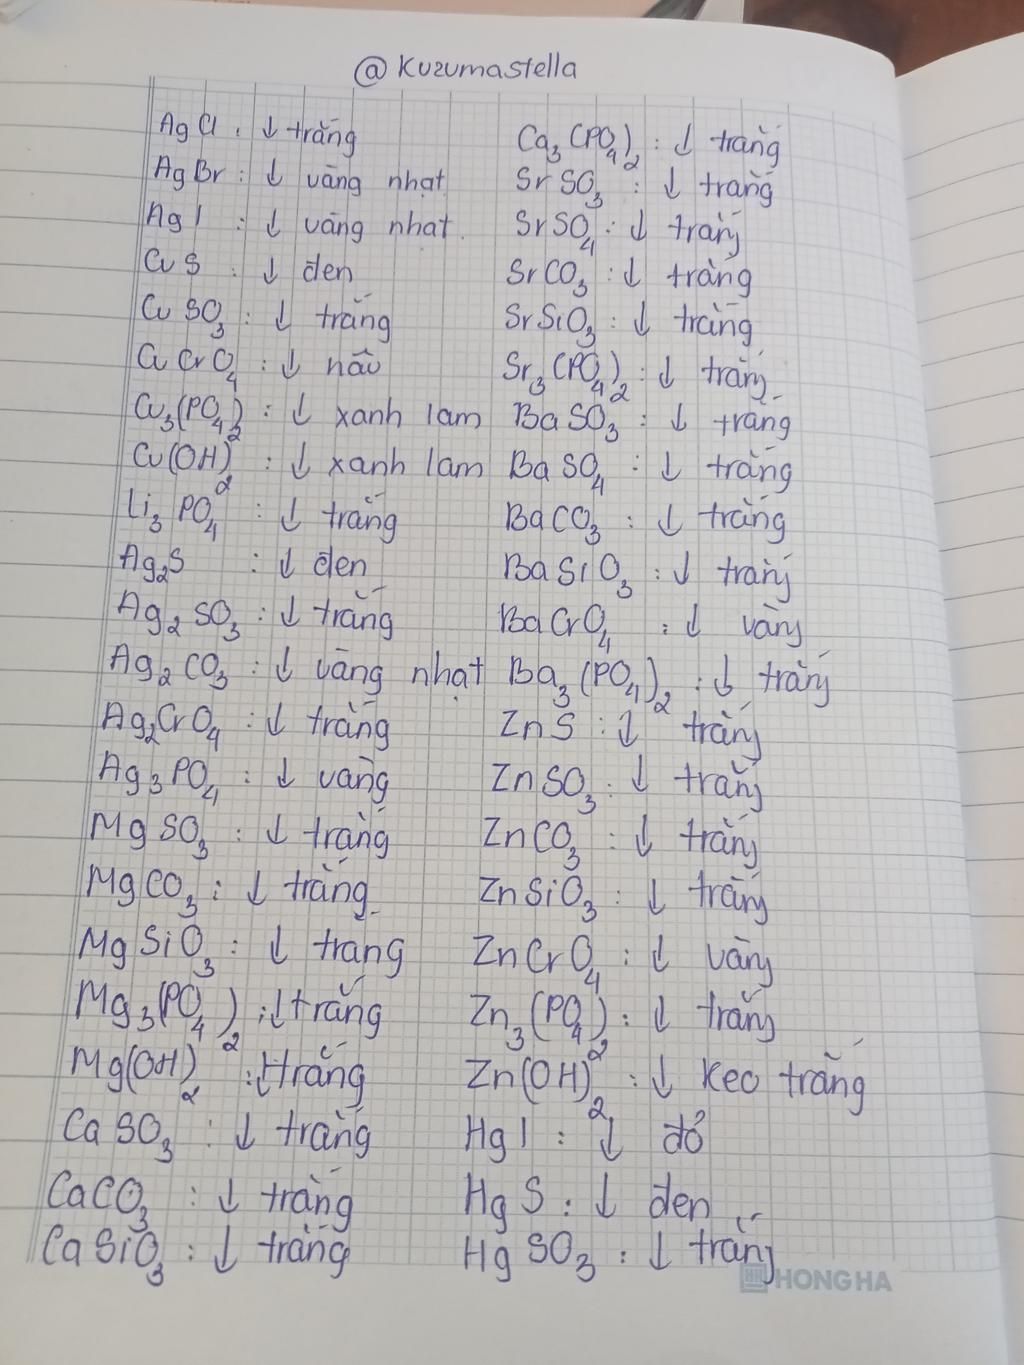 @ Kuzumastella
AgCl : ↓ trắng
AgBr : ↓ vàng nhạt
AgI : ↓ vàng nhạt
CuS : ↓ đen
CuSO₃ : ↓ trắng
CuCrO₄ : ↓ nâu
Cu₃(PO₄)₂ : ↓ xanh lam
Cu(OH)₂ : ↓ xanh lam
Li₃PO₄ : ↓ trắng
Ag₂S : ↓ đen
Ag₂SO₃ : ↓ trắng
Ag₂CO₃ : ↓ vàng nhạt
Ag₂CrO₄ : ↓ trắng
Ag₃PO₄ : ↓ vàng
MgSO₃ : ↓ trắng
MgCO₃ : ↓ trắng
MgSiO₃ : ↓ trang
Mg₃(PO₄)₂ : ↓ trắng
Mg(OH)₂ : ↓ trắng
CaSO₃ : ↓ trắng
CaCO₃ : ↓ trắng
CaSiO₃ : ↓ trắng
Ca₃(PO₄)₂ : ↓ trắng
SrSO₃ : ↓ trắng
SrSO₄ : ↓ trắng
SrCO₃ : ↓ trắng
SrSiO₃ : ↓ trắng
Sr₃(PO₄)₂ : ↓ trắng
BaSO₃ : ↓ trắng
BaSO₄ : ↓ trắng
BaCO₃ : ↓ trắng
BaSiO₃ : ↓ trắng
BaCrO₄ : ↓ vàng
Ba₃(PO₄)₂ : ↓ trắng
ZnS : ↓ trắng
ZnSO₃ : ↓ trắng
ZnCO₃ : ↓ trắng
ZnSiO₃ : ↓ trắng
ZnCrO₄ : ↓ vàng
Zn₃(PO₄)₂ : ↓ trắng
Zn(OH)₂ : ↓ keo trắng
HgI : ↓ đỏ
HgS : ↓ đen
HgSO₃ : ↓ trắng
HONG HA